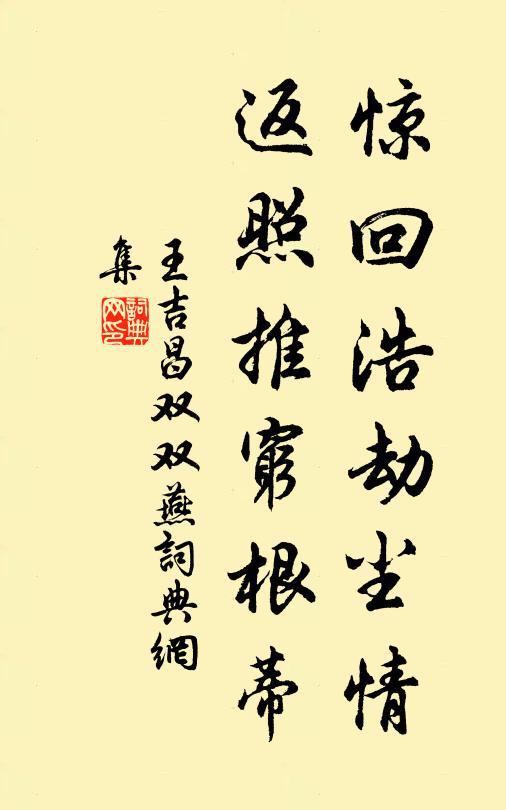 惊回浩劫尘情
返照推穷根蒂
王吉昌双双燕詞典網
集
詞典
网印